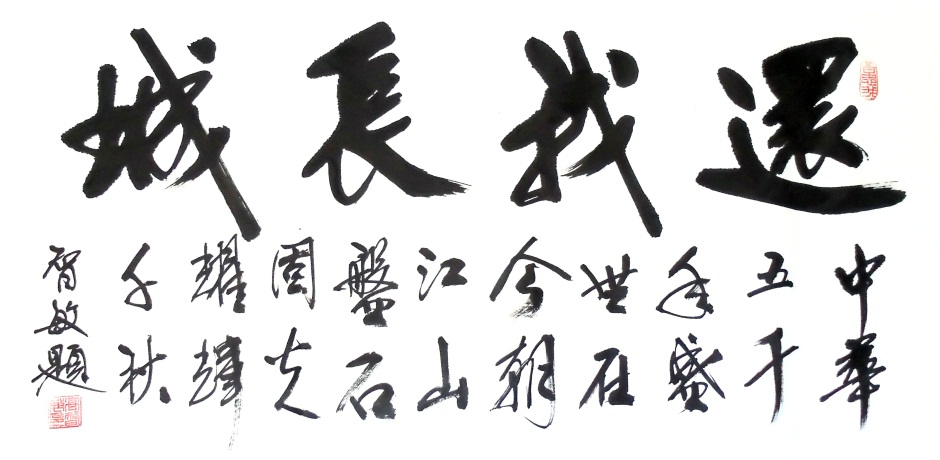 還我長城
中華
五千
年盛
世在
今朝
江山
盤石
固光
耀輝
千秋
智敏題